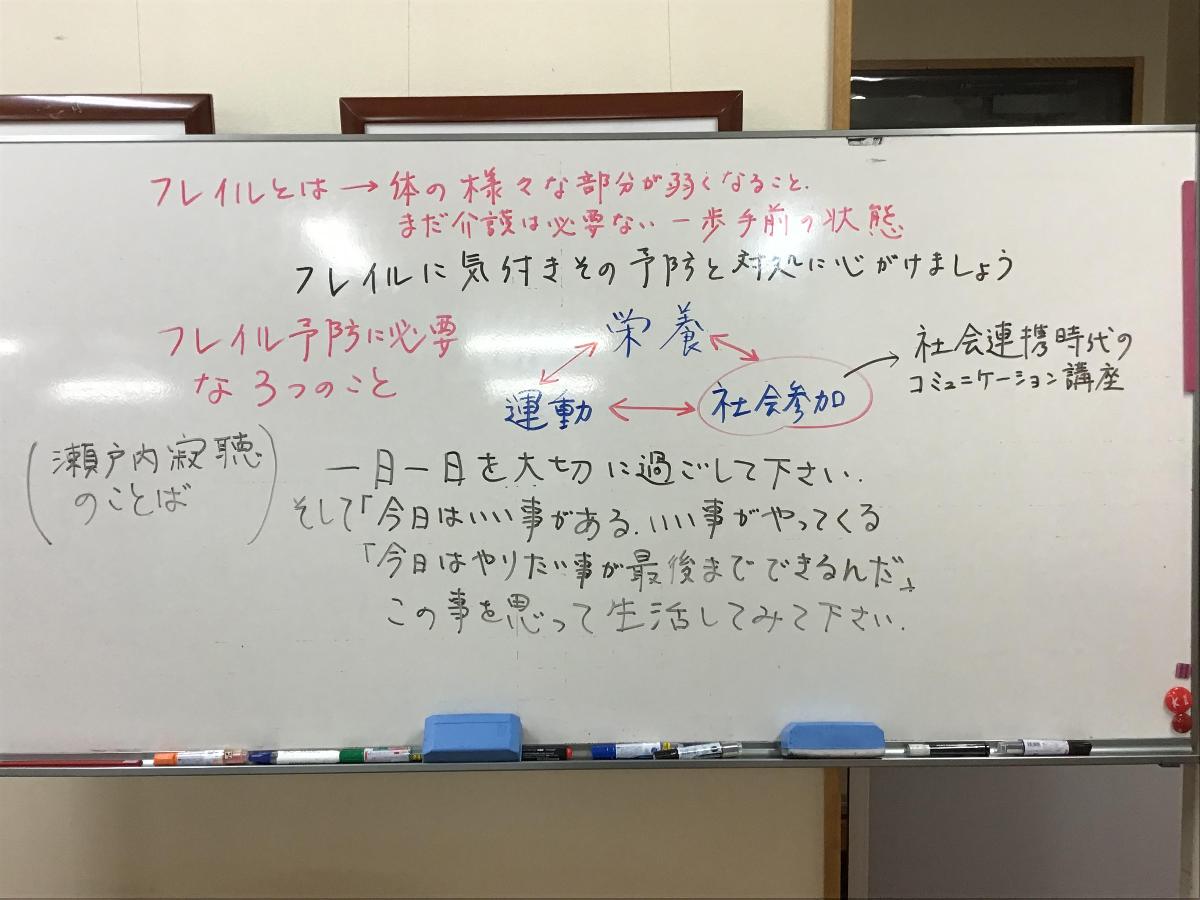 フレイルとは→体の様々な部分が弱くなること.
まだ介護は必要ない一歩手前の状態
フレイルに気付きその予防と対処に心がけましょう
フレイル予防に必要
な3つのこと
栄養
運動
社会参加
社会連携時代の
コミュニケーション講座
(瀬戸内寂聴
のことば)
一日一日を大切に過ごして下さい.
そして「今日はいい事がある.いい事がやってくる
「今日はやりたい事が最後までできるんだ」
この事を思って生活してみて下さい.